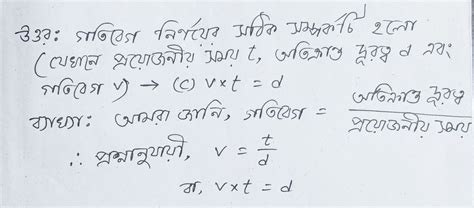 উত্তর: গতিবেগ নির্ণয়ের সঠিক সম্পর্কটি হলো
(যেখানে প্রয়োজনীয় সময় t, অতিক্রান্ত দূরত্ব d এবং
গতিবেগ v) → (c) v×t = d
ব্যাখ্যা: আমরা জানি, গতিবেগ = অতিক্রান্ত দূরত্ব / প্রয়োজনীয় সময়
∴ প্রশ্নানুযায়ী, v = t/d
বা, v×t = d